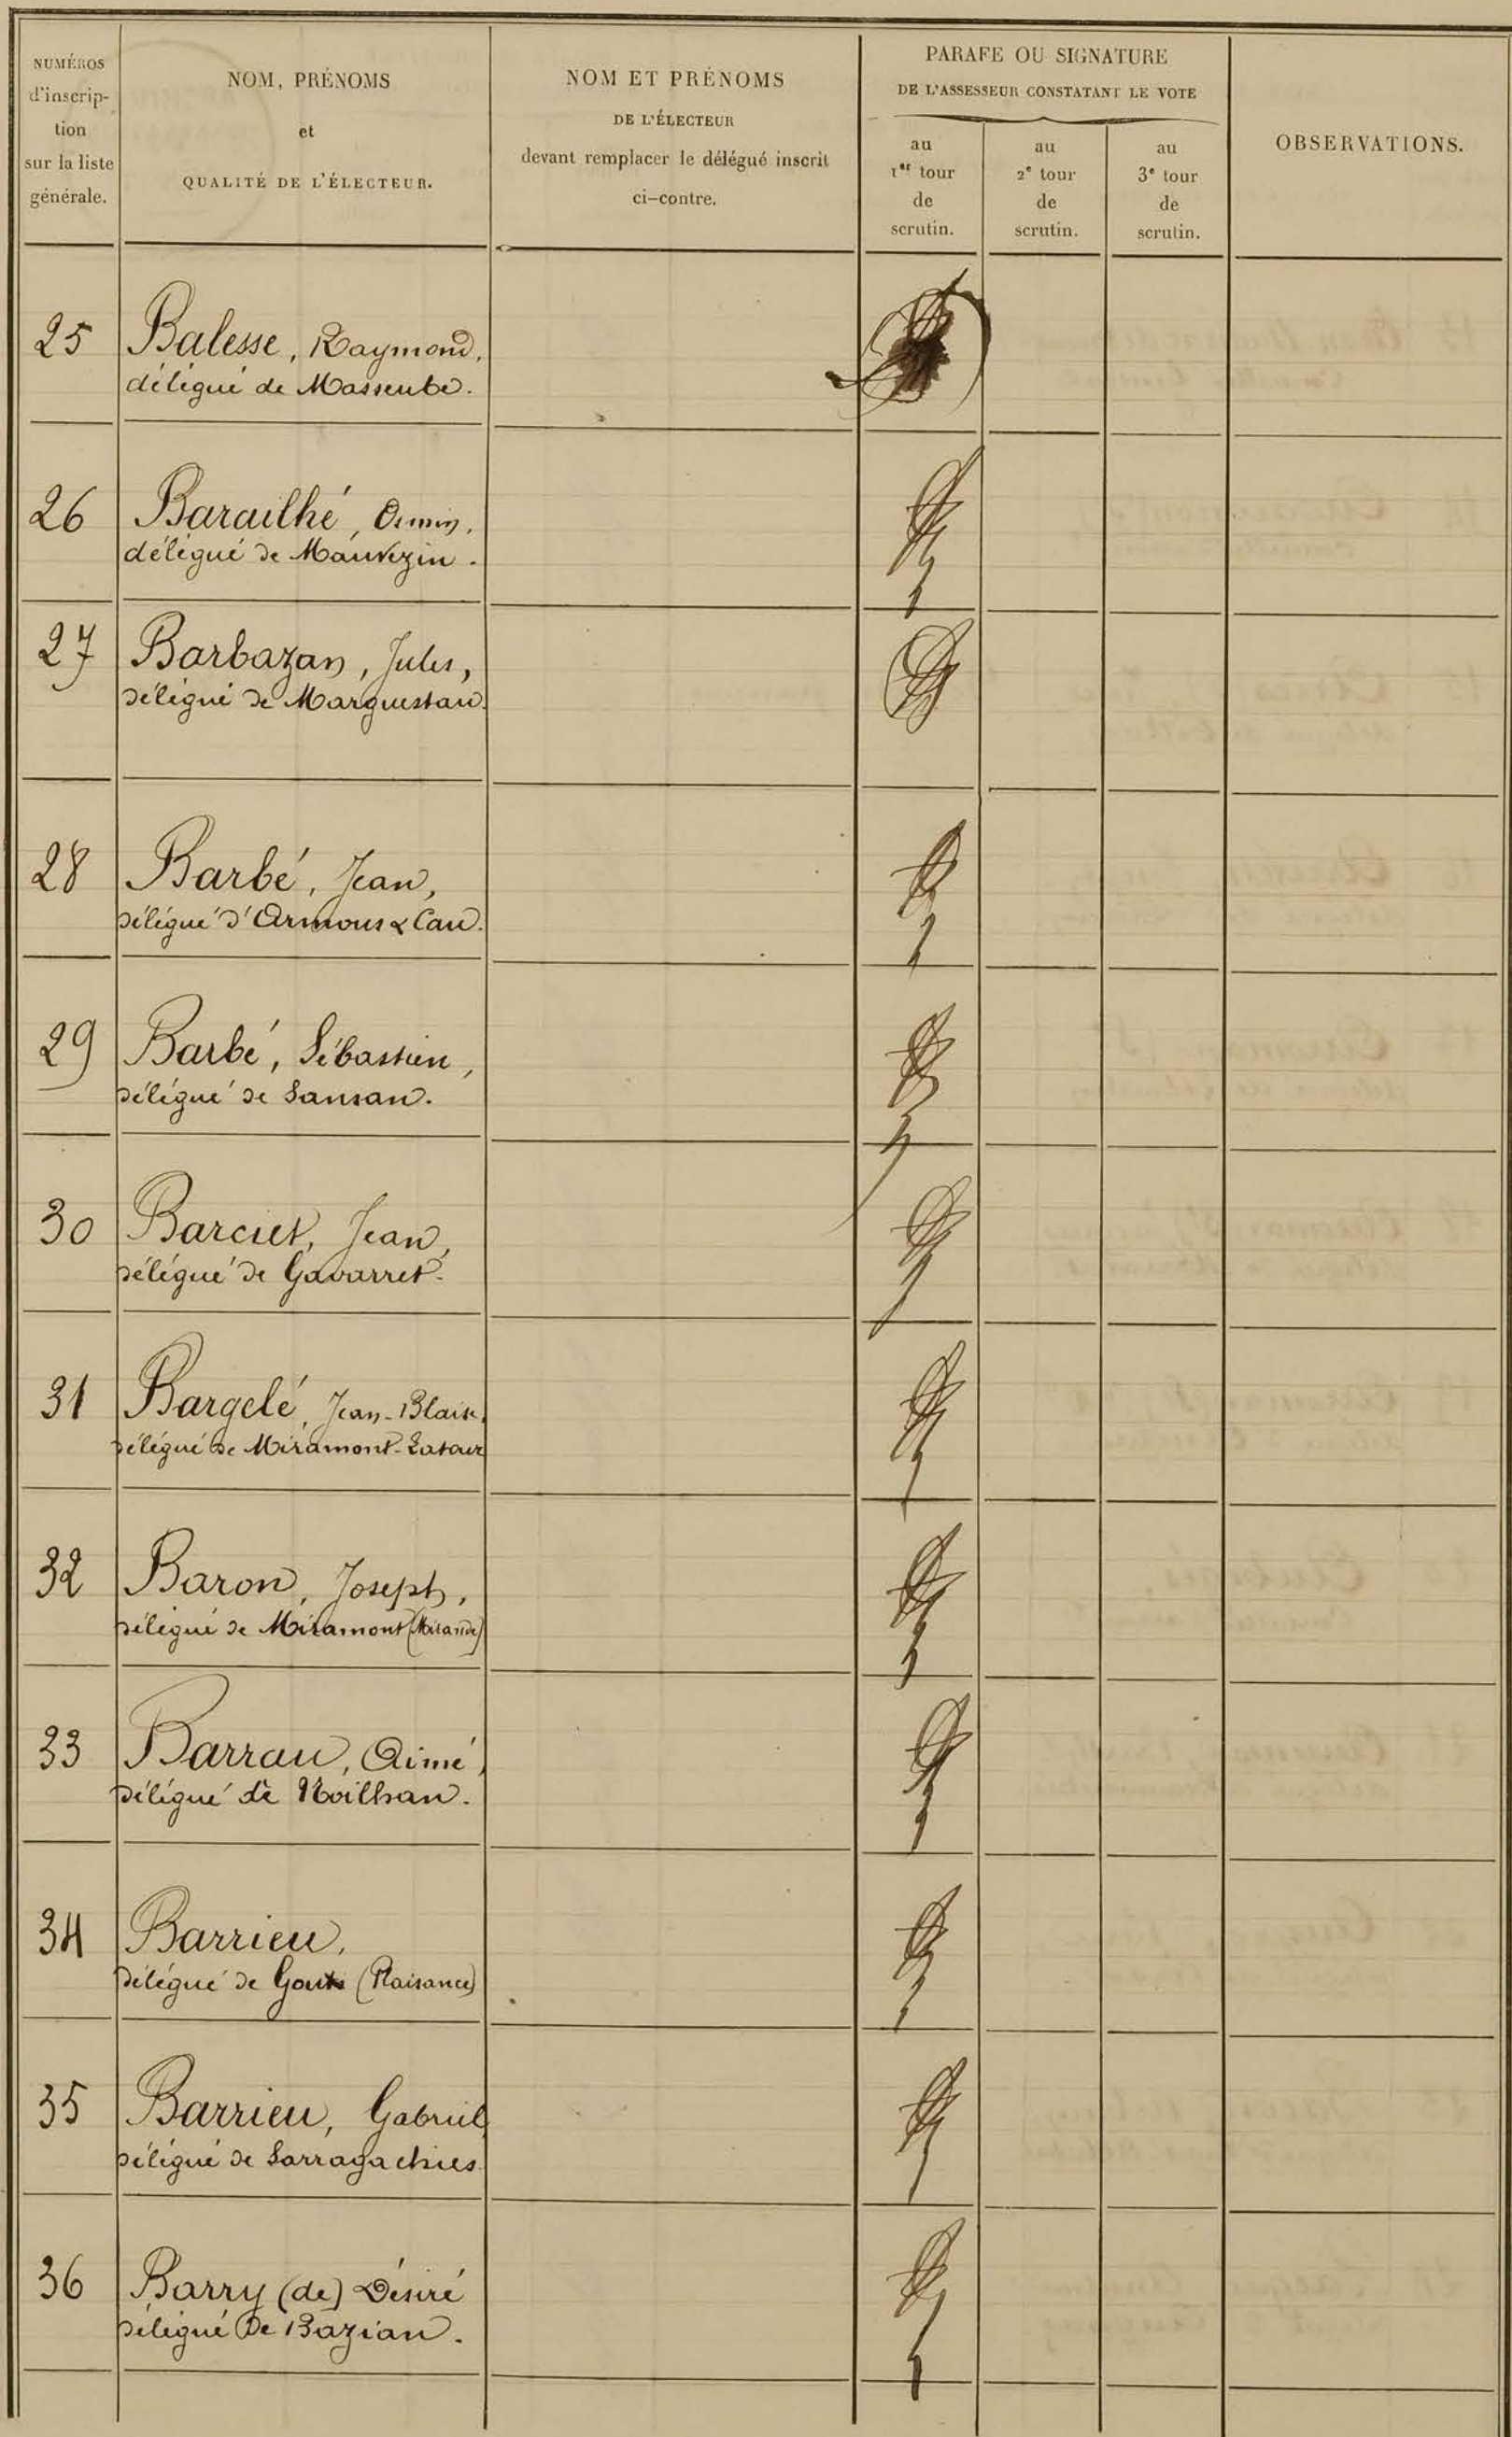 NUMÉROS
d'inscrip-
tion
sur la liste
générale.
NOM, PRÉNOMS
et
QUALITÉ DE L'ÉLECTEUR.
NOM ET PRÉNOMS
DE L'ÉLECTEUR
devant remplacer le délégué inscrit
ci-contre.
PARAFE OU SIGNATURE
DE L'ASSESSEUR CONSTATANT LE VOTE
au
1er tour
de
scrutin.
au
2e tour
de
scrutin.
au
3e tour
de
scrutin.
OBSERVATIONS.
25 Balesse, Raymond,
délégué de Masseube.
26 Barailhé, Osmin,
délégué de Mauvezin.
27 Barbazan, Jules,
délégué de Marguestau.
28 Barbé, Jean,
délégué d'Armous & Cau.
29 Barbé, Sébastien,
délégué de Sansan.
30 Barciet, Jean,
délégué de Gavarret.
31 Bargelé, Jean-Blaise,
délégué de Miramont-Latour
32 Baron, Joseph,
délégué de Miramont (Mirande)
33 Barrau, Aimé,
délégué de Noilhan.
34 Barrieu,
délégué de Goux (Plaisance)
35 Barrieu, Gabriel,
délégué de Sarragachies
36 Barry (de) Désiré
délégué de Bazian.